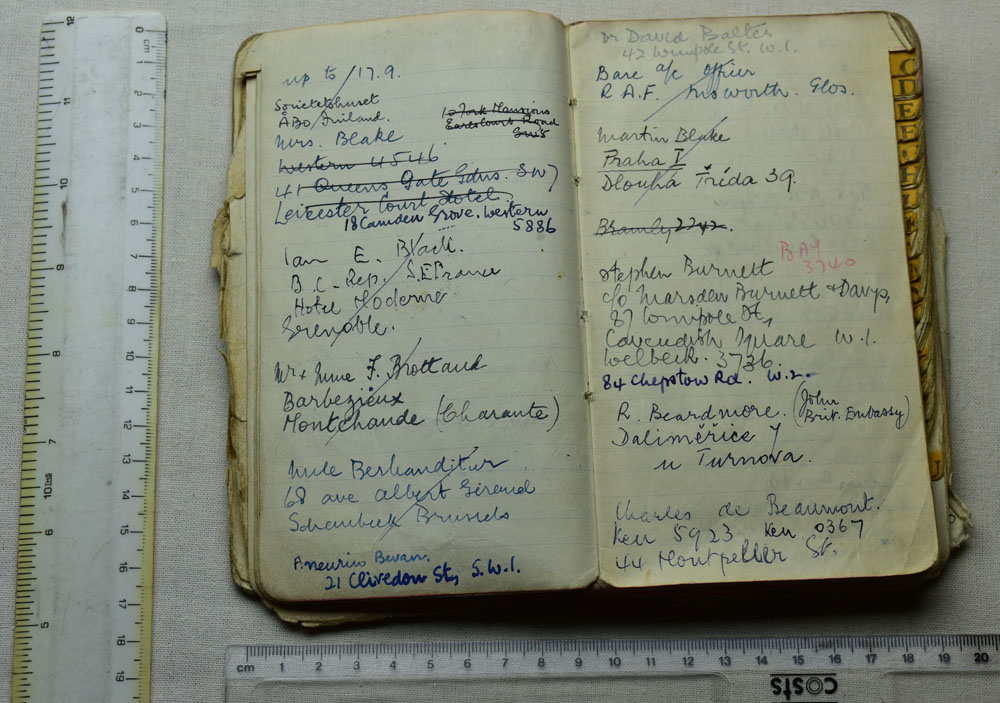 up to 17.9.
Societetshuset
ÅBO Finland.
Mrs. Blake
10 York Mansions
Earls Court Road
SW5
Western 4546
41 Queens Gate Gdns. SW7
Leicester Court Hotel.
18 Camden Grove. Western
5886
Ian E. Black.
B.C. Rep. S.E France
Hotel Moderne
Grenoble.
Mr + Mme F. Brottaud
Barbezieux
Montchaude (Charante)
Mlle
68 ave Albert Giraud
Schaerbeek Brussels
Aneurin Bevan.
21 Cliveden St, S.W.1.
Dr David Balter
42 Wimpole St. W.1.
Base a/c officer
R.A.F. Glos.
Martin Blake
Praha I
Dlouhá Třída 39.
Bramley 2242.
BAY
3740
Stephen Burnett
c/o Marsden Burnett + Davys,
87 Wimpole St,
Cavendish Square W.1.
Welbeck. 3736.
84 Chepstow Rd. W.2.
R. Beardmore. (John
Brit. Embassy)
Daliměřice 7
u Turnova.
Charles de Beaumont.
Ken 5923 Ken 0367
44 Montpelier St.
C
D
E
F
H
J
12
11
10
9
8
7
6
5
0
cm
1
2
3
4
5
6
7
8
9
10
11
12
13
14
15
16
17
18
19
cm 1 2 3 4 5 6 7 8 9 10 11 12 13 14 15 16 17 18 19 20
costs